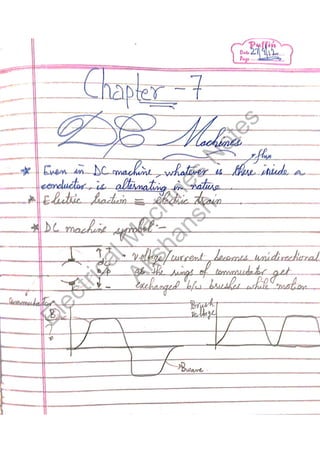 Date 21/9/12
Page
Chapter - 7
DC Machines
→ flux
* Even in DC machine, whatever is there inside a
conductor, is alternating in nature.
* Electric traction ≡ electric train
* DC machine symbol :-
voltage/current becomes unidirectional
as the rings of commutator get
exchanged b/w brushes while motion
Brush
voltage
Electrical Machines Notes